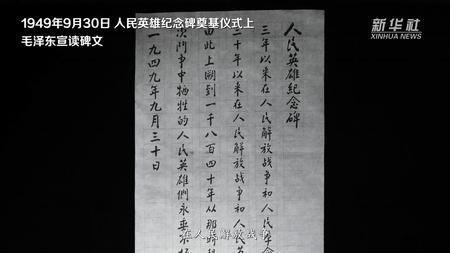 1949年9月30日 人民英雄纪念碑奠基仪式上
毛泽东宣读碑文
新华社
XINHUA NEWS
人民英雄紀念碑
三年以来在人民解放战争和人民革
三十年以来在人民解放战争和人民
由此上溯到一千八百四十年从那时
次鬥争中牺牲的人民英雄們永垂不
一九四九年九月三十日
在人民解放战争